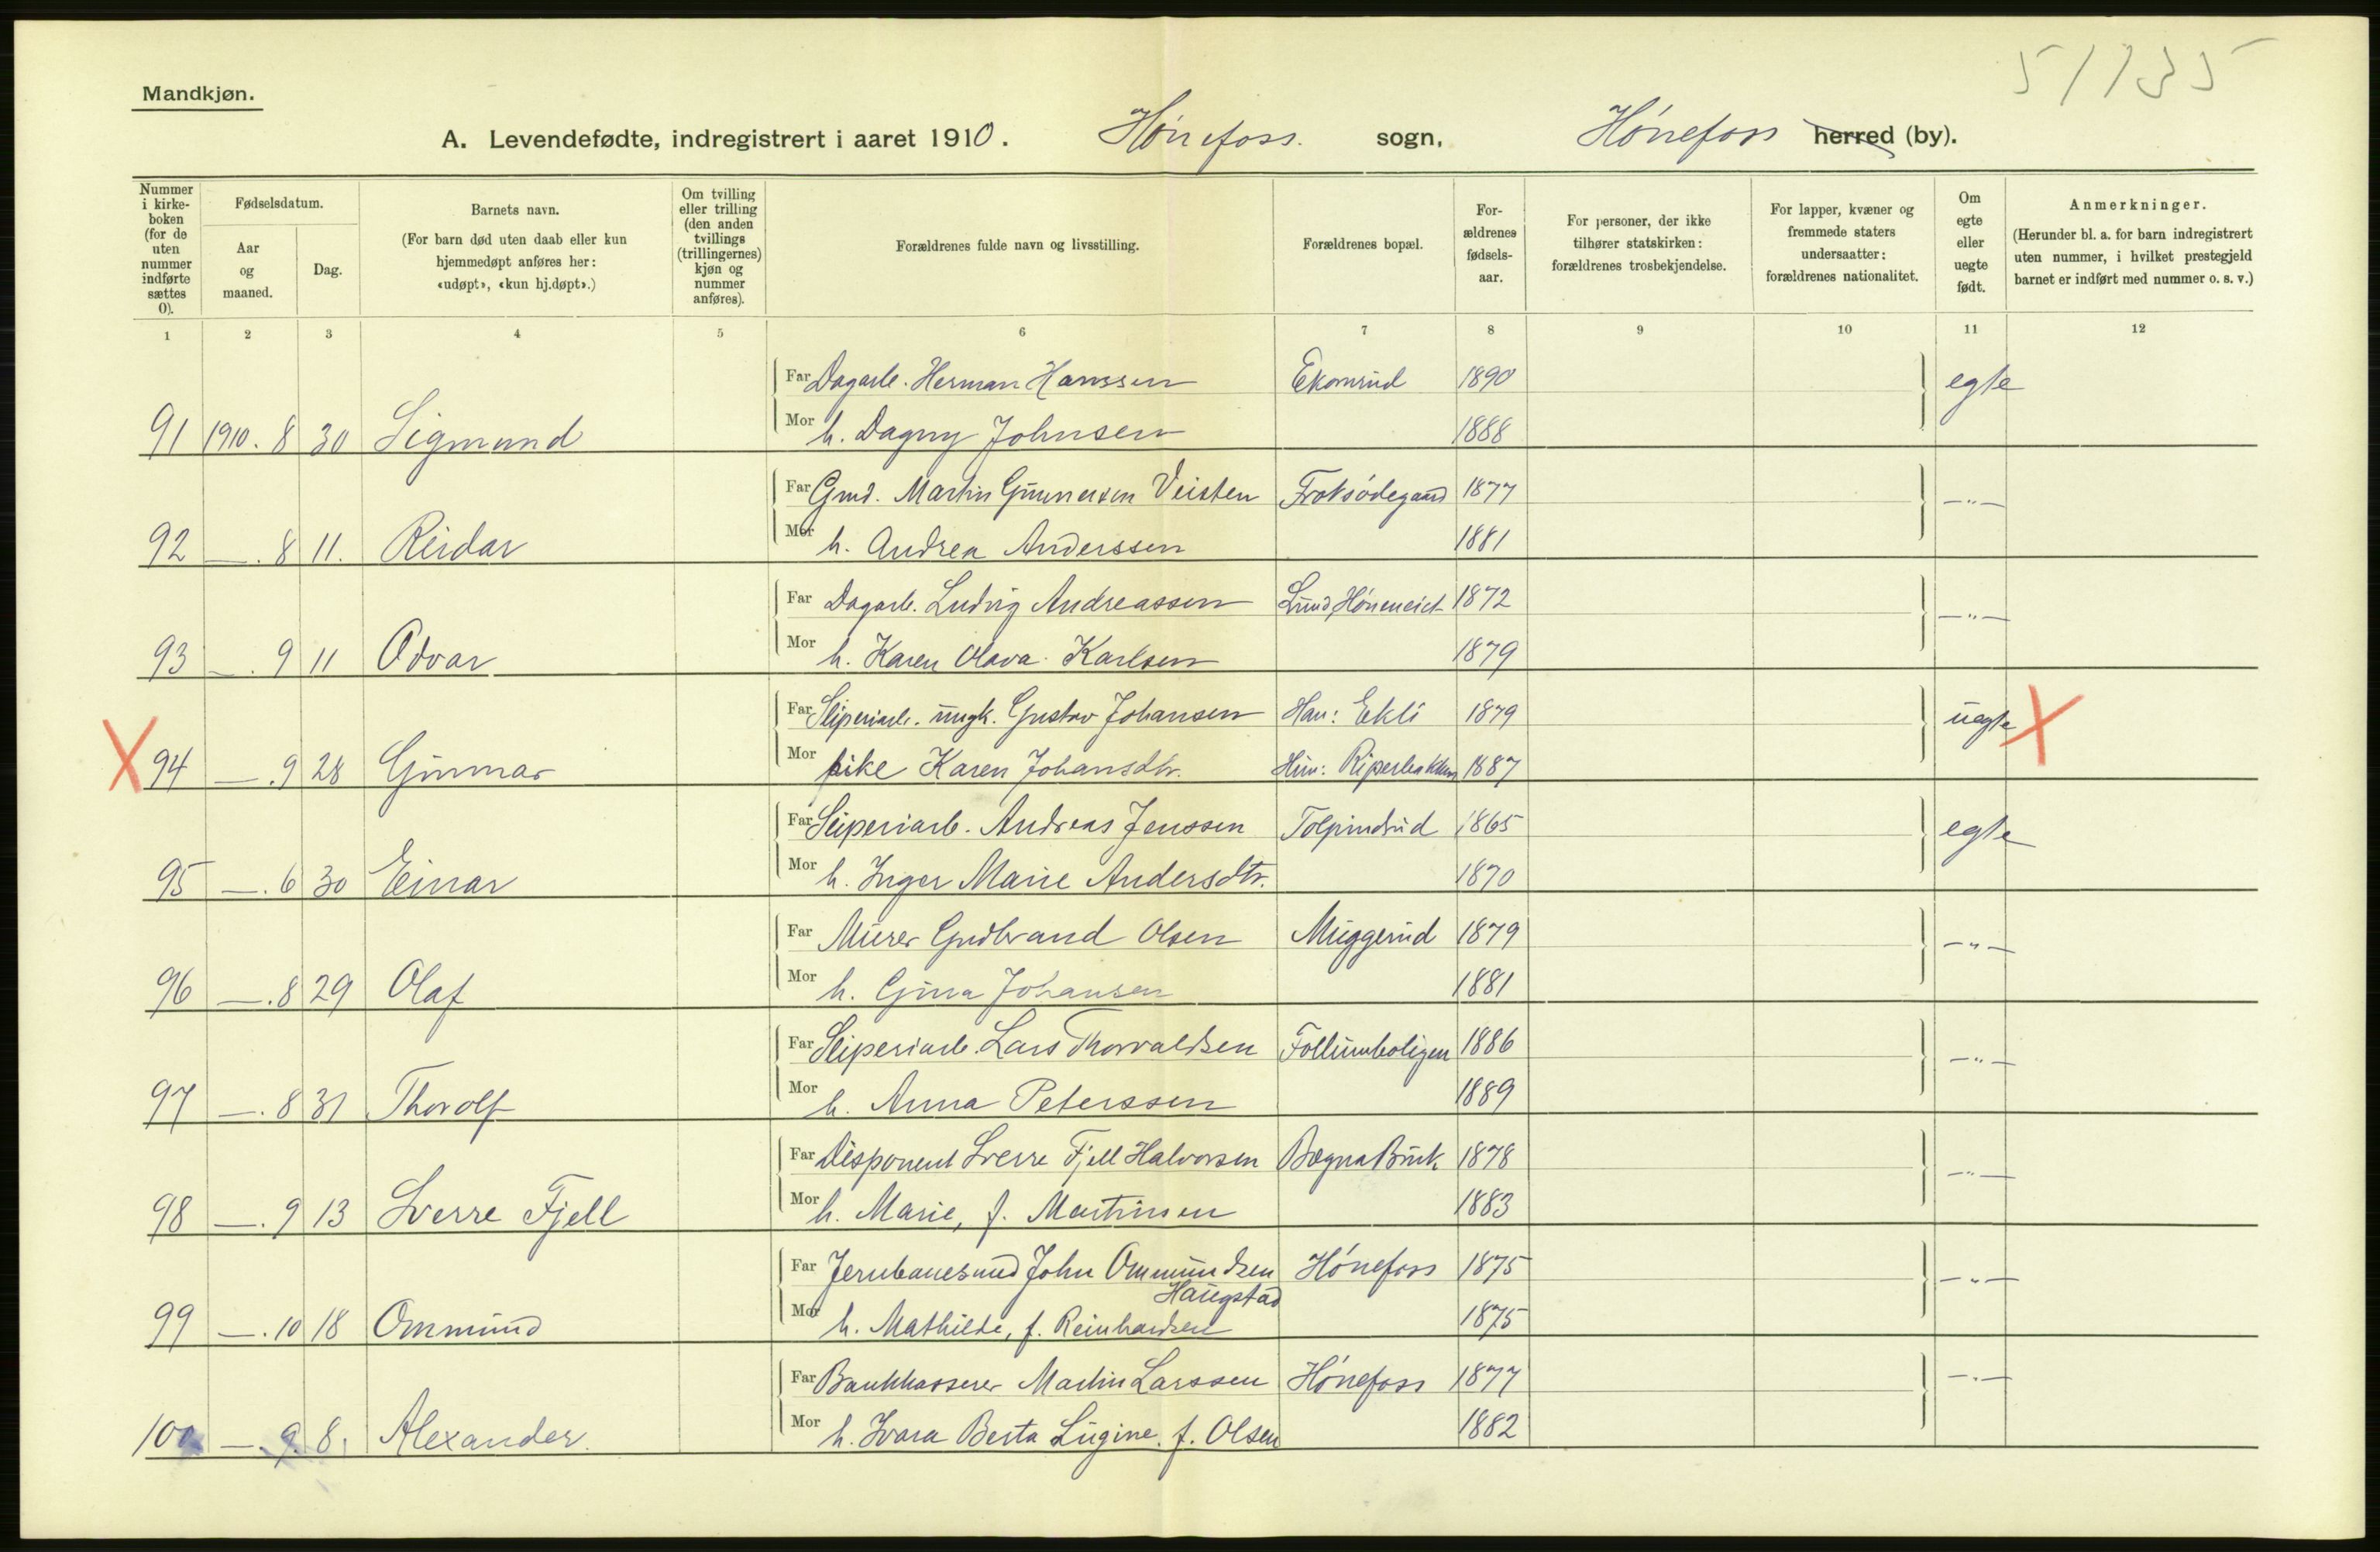 51135
Mandkjøn.
A. Levendefødte, indregistrert i aaret 1910. Hönefoss. sogn, Hönefoss herred (by).
Nummer i kirkeboken (for de uten nummer indførte sættes 0).
Fødselsdatum.
Aar og maaned.
Dag.
Barnets navn.
(For barn død uten daab eller kun hjemmedøpt anføres her: «udøpt», «kun hj.døpt».)
Om tvilling eller trilling (den anden tvillings (trillingernes) kjøn og nummer anføres).
Forældrenes fulde navn og livsstilling.
Forældrenes bopæl.
Forældrenes fødselsaar.
For personer, der ikke tilhører statskirken: forældrenes trosbekjendelse.
For lapper, kvæner og fremmede staters undersaatter: forældrenes nationalitet.
Om egte eller uegte født.
Anmerkninger.
(Herunder bl. a. for barn indregistrert uten nummer, i hvilket prestegjeld barnet er indført med nummer o. s. v.)
1 2 3 4 5 6 7 8 9 10 11 12
Far Dagarb. Herman Hanssen Ekornrud 1890 egte
91 1910. 8 30 Sigmund Mor h. Dagny Johnsen 1888
Far Gmd. Martin Gunnersen Veisten 1877 —"—
92 —. 8 11. Reidar Mor h. Andrea Anderssen 1881
Far Dagarb. Ludvig Andreassen Lund, 1872 —"—
93 —. 9 11 Odvar Mor h. Karen Olava Karlsen 1879
Far Sliperiarb. ungk. Gustav Johansen Han: Ekli 1879 uegte X
X 94 —. 9 28 Gunnar Mor pike Karen Johansdtr. Hun: Ripersbakken 1887
Far Sliperiarb. Andreas Jenssen Tolpinrud 1865 egte
95 —. 6 30 Einar Mor h. Inger Marie Andersdtr. 1870
Far Murer Gudbrand Olsen Muggerud 1879 —"—
96 —. 8 29 Olaf Mor h. Gina Johansen 1881
Far Sliperiarb. Lars Thorvaldsen Follumboligen 1886 —"—
97 —. 8 31 Thorolf Mor h. Anna Peterssen 1889
Far Disponent Sverre Fjell Halvorsen Bægna Bruk 1878 —"—
98 —. 9 13 Sverre Fjell Mor h. Marie, f. Martinsen 1883
Far Jernbanesmed John Ommundsen Hönefoss 1875 —"—
Haugstad
99 —. 10 18 Ommund Mor h. Mathilde, f. Reinhardsen 1875
Far Bankkasserer Martin Larssen Hönefoss 1877 —"—
100 —. 9. 8. Alexander. Mor h. Ivara Berta Lugine. f. Olsen 1882